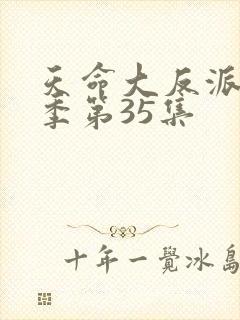 天命大反派
季第35集
十年一覺冰島